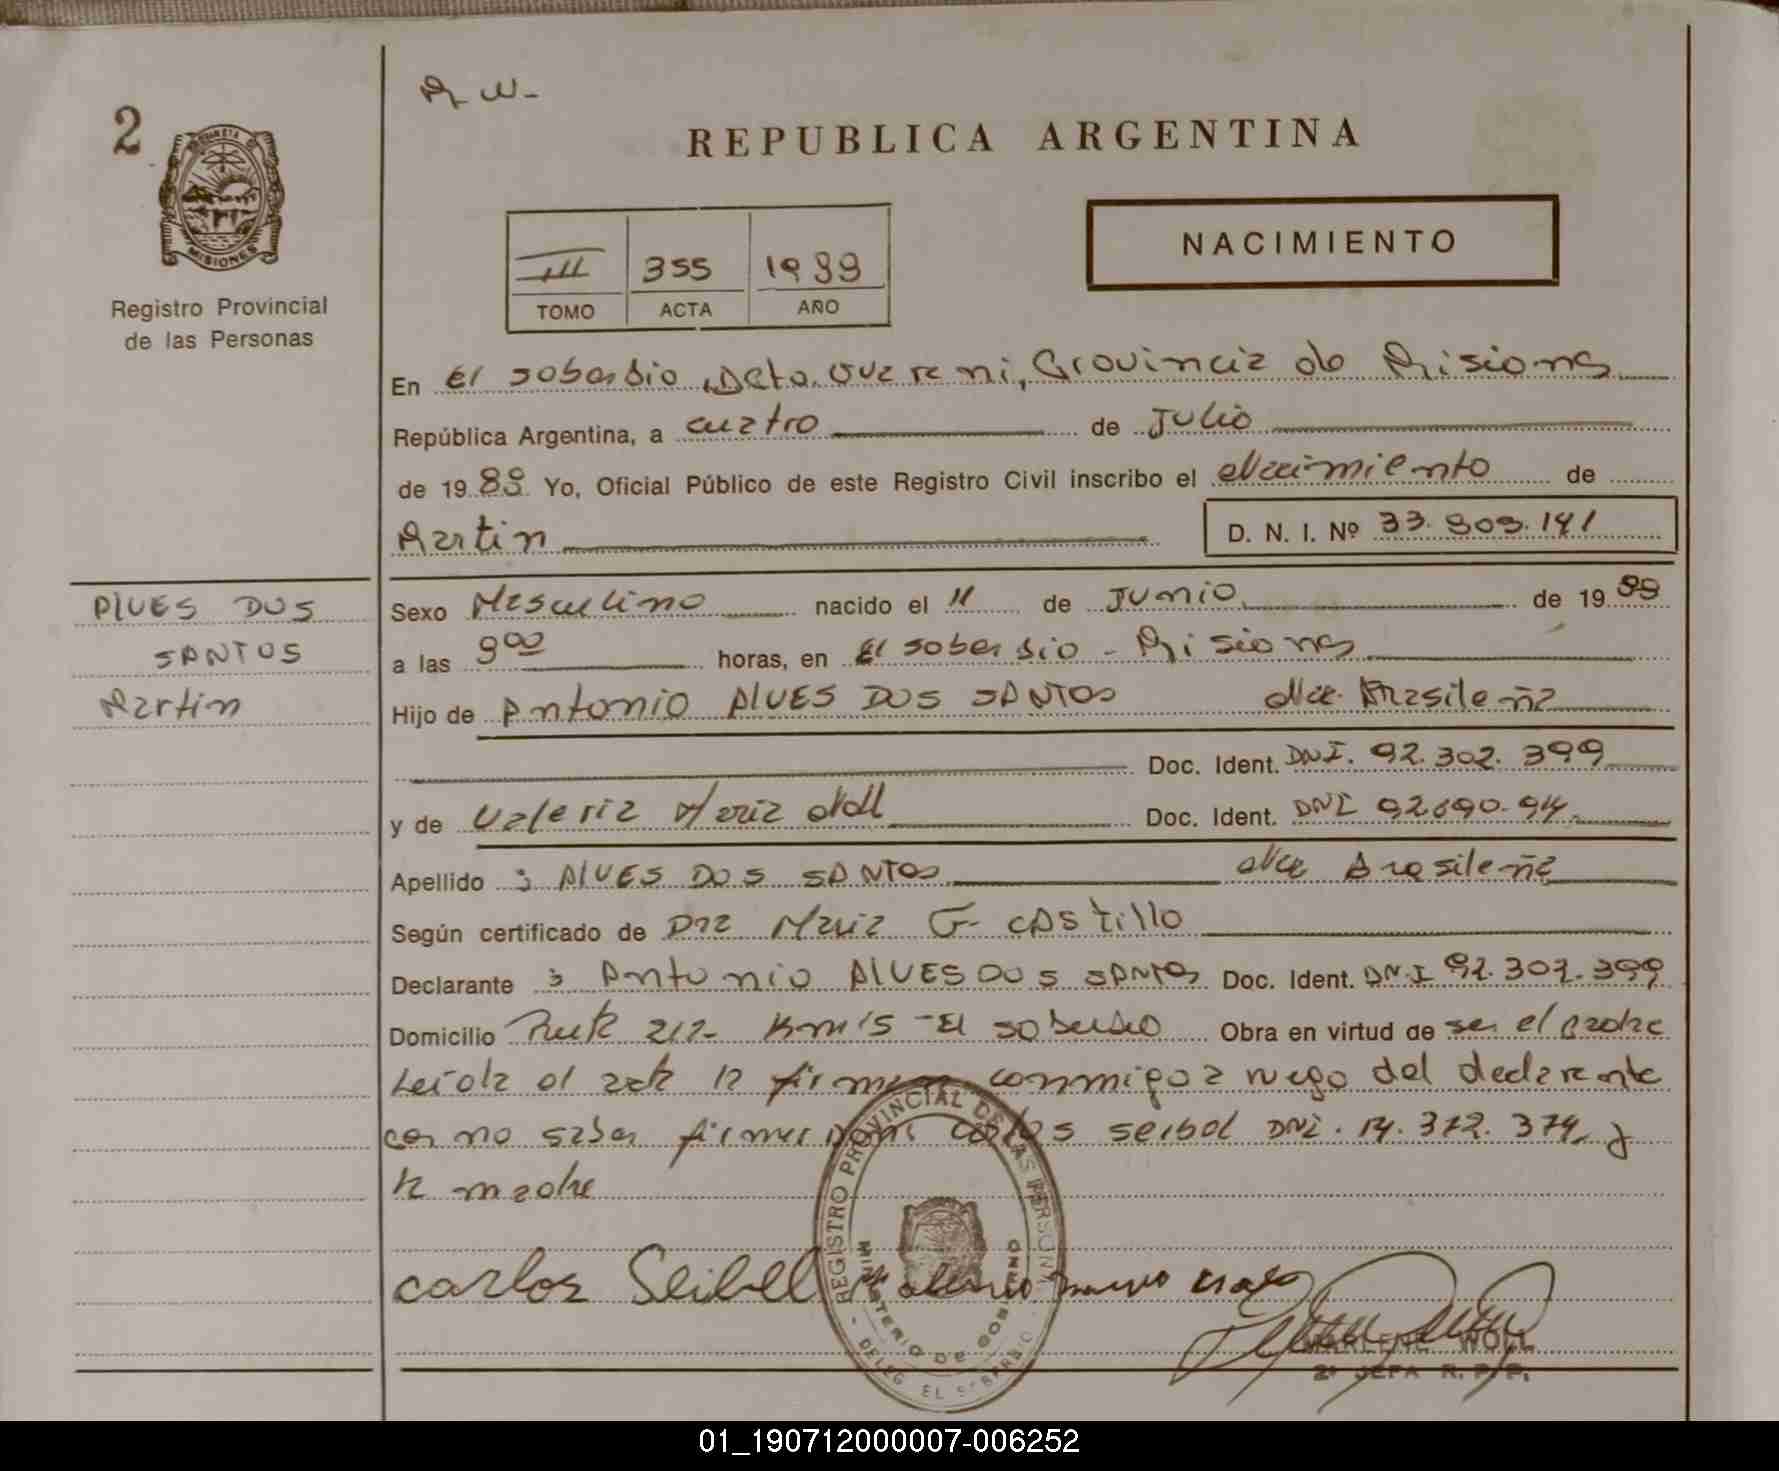 M. W-
2
REPUBLICA ARGENTINA
MISIONES
Registro Provincial
de las Personas
NACIMIENTO
III 355 1989
TOMO ACTA AÑO
En El soberbio, Dcto. Guarani, Provincia de Misiones
República Argentina, a cuatro de Julio
de 1989 Yo, Oficial Público de este Registro Civil inscribo el Nacimiento de
Martin
D. N. I. Nº 33.909.141
ALVES DOS
SANTOS
Martin
Sexo Masculino nacido el 11 de Junio de 1989
a las 9 00 horas, en El soberbio - Misiones
Hijo de Antonio ALVES DOS SANTOS Nac. Brasileña
Doc. Ident. DNI. 92.302.399
y de Valeria Maria Noll Doc. Ident. DNI 92.690.94
Apellido : ALVES DOS SANTOS Nac Brasileña
Según certificado de Dra Maria G. CAStillo
Declarante : Antonio ALVES DOS SANTOS Doc. Ident. DN.I 92.302.399
Domicilio Ruta 212- Km 15 - El soberbio Obra en virtud de ser el padre
Leida el acta la firman conmigo a ruego del declarante
por no saber firmar Don: Carlos Seibel DNI. 14.372.374 y
la madre
carlos Seibel
REGISTRO PROVINCIAL DE LAS PERSONAS
MINISTERIO DE GOBIERNO
- DELEG. EL SOBERBIO -
MARLENE WOLL
2ª JEFA R. P. P.
01_190712000007-006252